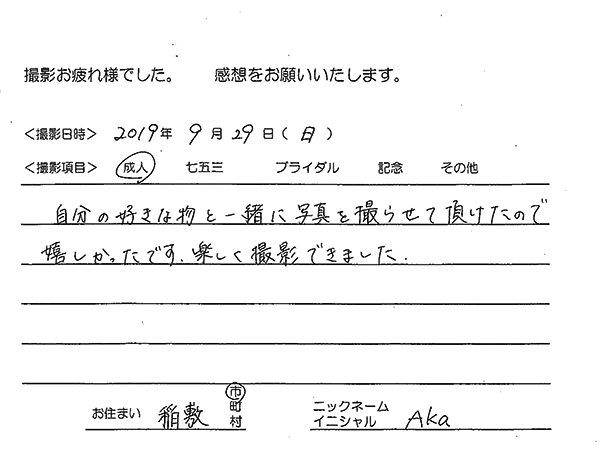 撮影お疲れ様でした。 感想をお願いいたします。
＜撮影日時＞ 2019年 9月 29日（日）
＜撮影項目＞ 成人 七五三 ブライダル 記念 その他
自分の好きな物と一緒に写真を撮らせて頂けたので
嬉しかったです。楽しく撮影できました.
お住まい 稲敷 市町村 ニックネームイニシャル Aka